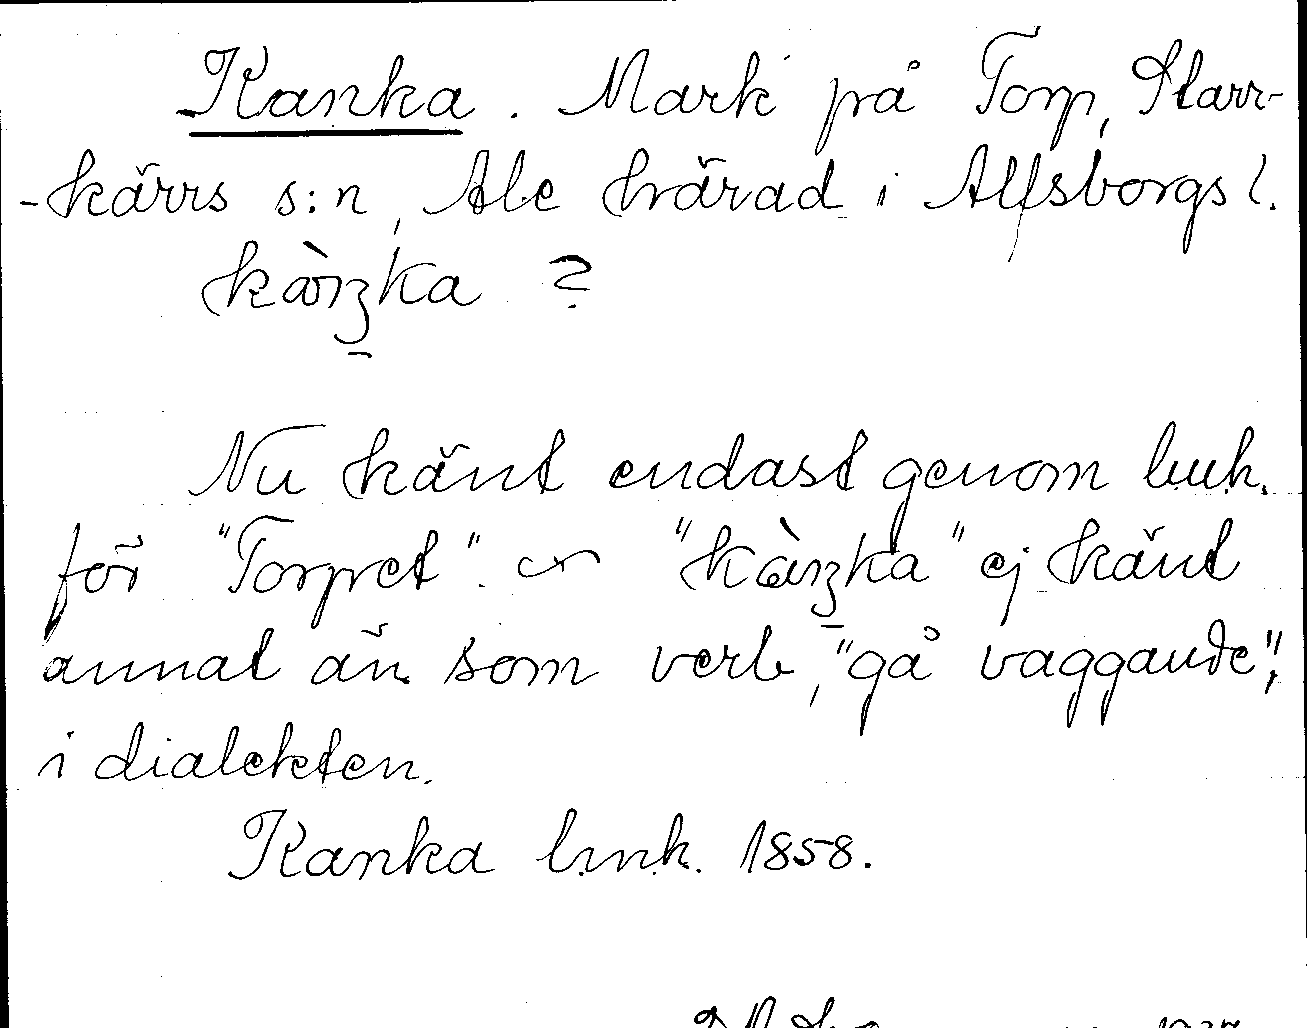 Kanka. Mark på Torp, Starr-
-kärrs s:n, Ale härad i Älfsborgs l.
kàŋka ?
Nu känt endast genom lmk.
för "Torpet". ~ "kàŋka" ej känt
annat än som verb, "gå vaggande",
i dialekten.
Kanka lmk. 1858.